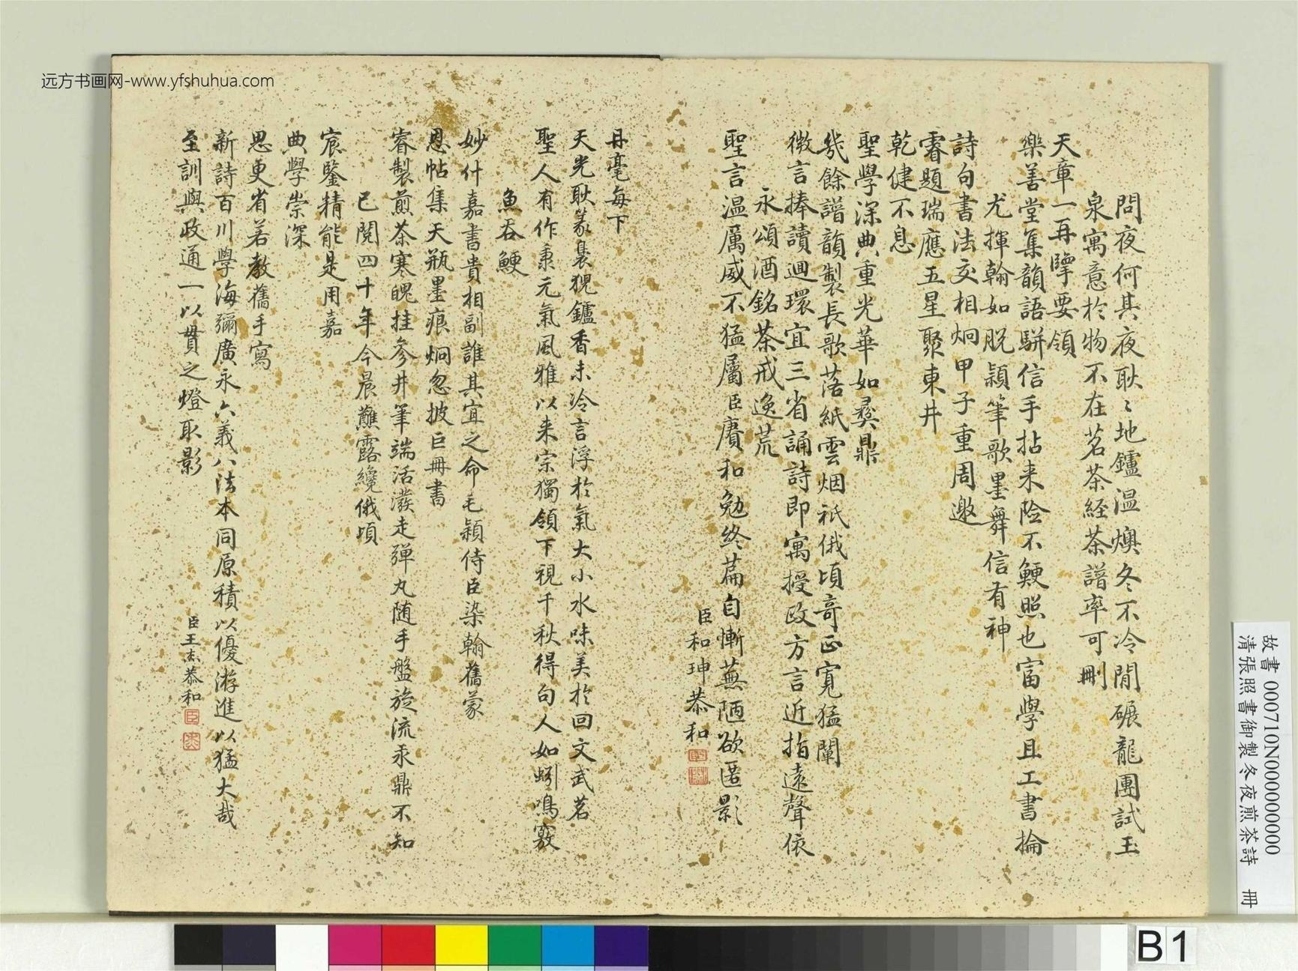 远方书画网-www.yfshuhua.com
問夜何其夜耿〻地鑪温燠冬不冷閒碾龍團試玉
泉寓意於物不在茗茶経茶譜率可刪
天章一再擘要領
樂善堂集韻語駢信手拈来險不鯁照也富學且工書掄
尤揮翰如脫穎筆歌墨舞信有神
詩句書法交相炯甲子重周邀
睿題瑞應五星聚東井
乾健不息
聖學深典重光華如彝鼎
幾餘譜韻製長歌落紙雲烟祇俄頃奇正寬猛闡
微言捧讀迴環宜三省誦詩即寓授政方言近指遠聲依
永頌酒銘茶戒逸荒
聖言温厲威不猛屬臣賡和勉終篇自慚蕪陋欲匿影
臣和珅恭和
丹毫每下
天光耿篆裊猊鑪香未冷言浮於氣大小水味美於回文武茗
聖人有作秉元氣風雅以来宗獨領下視千秋得句人如蚓鳴竅
魚吞鯁
妙什嘉書貴相副誰其宜之命毛穎侍臣染翰舊蒙
恩帖集天瓶墨痕炯忽披巨冊書
睿製煎茶寒魄挂参井筆端活潑走彈丸随手盤旋流汞鼎不知
已閱四十年今晨蘸露纔俄頃
宸鑒精能是用嘉
典學崇深
思更省若教舊手寫
新詩百川學海彌廣永六義八法本同原積以優游進以猛大哉
至訓與政通一以貫之燈取影
臣王杰恭和
故書 000710N000000000
清張照書御製冬夜煎茶詩 冊
B1